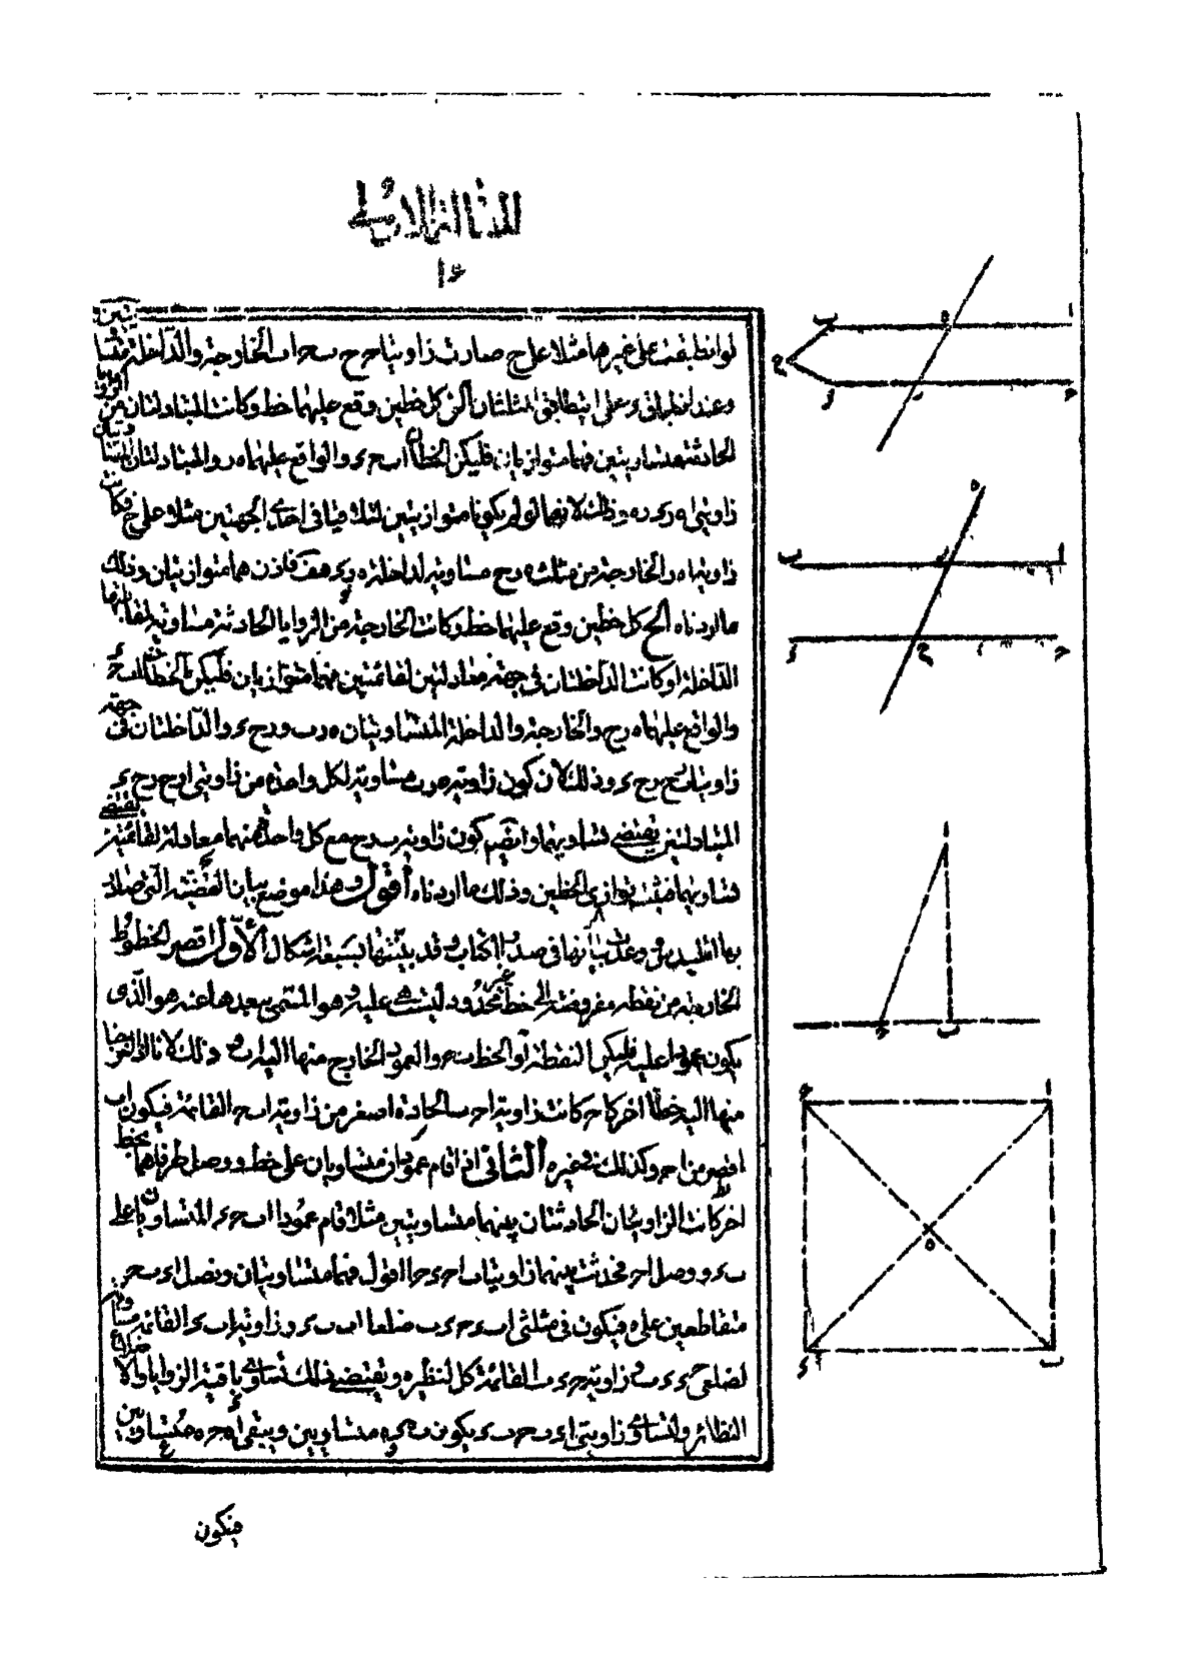 المقالة الاولى
١٤
لو انطبقت على غيرها مثلا على ح صارت زاويتا ح ب ح اب الخارجة والداخلة متساويتين
وعند انطباق ء على ا ينطابق المثلثان كل خطين وقع عليهما خط وكانت المتبادلتان من الزوايا
الحادثة متساويتين فهما متوازيان فليكن الخطان اب حء والواقع عليهما ه ر والمتبادلتان المتساويتان
زاويتى ا ه ر ء ر ه وذلك لانهما لو لم يكونا متوازيين لتلاقيا فى احدى الجهتين مثلا على ح فكانت
زاوية ا ه ر الخارجة من مثلث ه ر ح مساوية لداخلة ه ر ء هف فاذن هما متوازيان وذلك
ما اردناه كل خطين وقع عليهما خط وكانت الخارجة من الزوايا الحادثة مساوية لمقابلتها
الداخلة او كانت الداخلتان فى جهة معادلتين لقائمتين فهما متوازيان فليكن الخطان اب حء
والواقع عليهما ه ر ح والخارجة والداخلة المتساويتان ه ر ب و ر ح ء والداخلتان فى جهة
زاويتا ب ر ح ر ح ء وذلك لان كون زاوية ه ر ب مساوية لكل واحدة من زاويتى ا ر ح ر ح ء
المتبادلتين يقتضى تساويهما وايضا كون زاوية ب ر ح مع كل واحدة منهما معادلة لقائمتين يقتضى
تساويهما فثبت توازى الخطين وذلك ما اردناه اقول وهذا موضع بيان القضية التى صادر
بها اقليدس وعدت بيانها فى صدر الكتاب وقد بينتها بسبعة اشكال الاول اقصر الخطوط
الخارجة من نقطة مفروضة الى خط غير محدود ليست هى عليه وهو المسمى ببعدها عنه هو الذى
يكون عمودا عليه فليكن النقطة ا والخط ب ء والعمود الخارج منها اليه اب وذلك لانا اذا اخرجنا
منها اليه خطا اخر كا ح كانت زاوية ا ح ب الحادة اصغر من زاوية ا ب ح القائمة فيكون اب
اقصر من ا ح وكذلك فى غيره الثانى اذا قام عمودان متساويان على خط ووصل طرفاهما بخط
اخر كانت الزاويتان الحادثتان بينهما متساويتين مثلا قام عمودا اب حء المتساويان على
ب ء ووصل ا ح فحدثت بينهما زاويتا ب ا ح ء ح ا اقول فهما متساويتان ونصل ا ء ب ح
متقاطعين على ه فيكون فى مثلثى ا ب ء ح ء ب ضلعا ا ب ب ء وزاوية ا ب ء القائمة مساوية
لضلعى ح ء ء ب وزاوية ح ء ب القائمة كل لنظيره ويقتضى ذلك تساوى باقية الزوايا والاضلاع
النظائر ولتساوى زاويتى ا ء ب ح ب ء يكون ب ه ء ه متساويين ويبقى ا ه ح ه متساويين
فيكون
ا
ه
ب
ح
ء
ر
ح
ه
ا
ر
ب
ح
ء
ح
ح
ب
ا
ح
ه
ء
ب